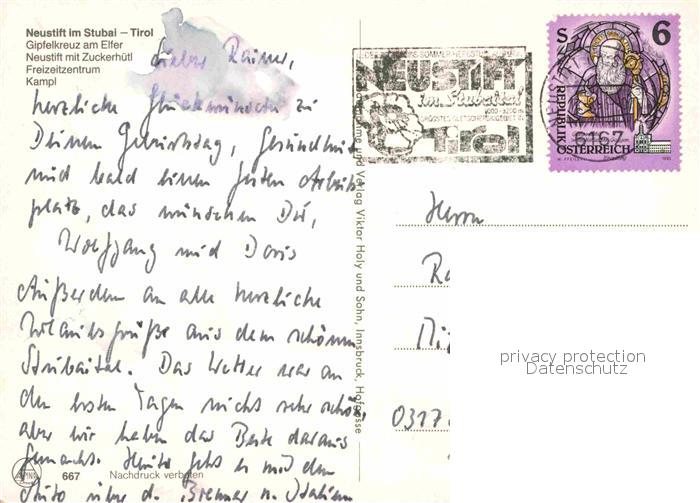 Neustift im Stubai – Tirol
Gipfelkreuz am Elfer
Neustift mit Zuckerhütl
Freizeitzentrum
Kampl
Lieber Rainer,
herzliche Glückwünsche zu
Deinem Geburtstag, Gesundheit
und bald einen festen Arbeits
platz, das wünschen Dir,
Wolfgang und Doris
Außerdem an alle herzliche
Urlaubsgrüße aus dem schönen
Stubaital. Das Wetter war an
den ersten Tagen nicht sehr schön,
aber wir haben das Beste daraus
gemacht. Heute geht es mit dem
Auto über d. Brenner n. Italien
667 Nachdruck verboten
Verlag Viktor Holy und Sohn, Innsbruck, Hofgasse
NEUSTIFT
im Stubaital
Tirol
S 6
REPUBLIK
ÖSTERREICH
6167
Herrn
Ra
0317
privacy protection
Datenschutz